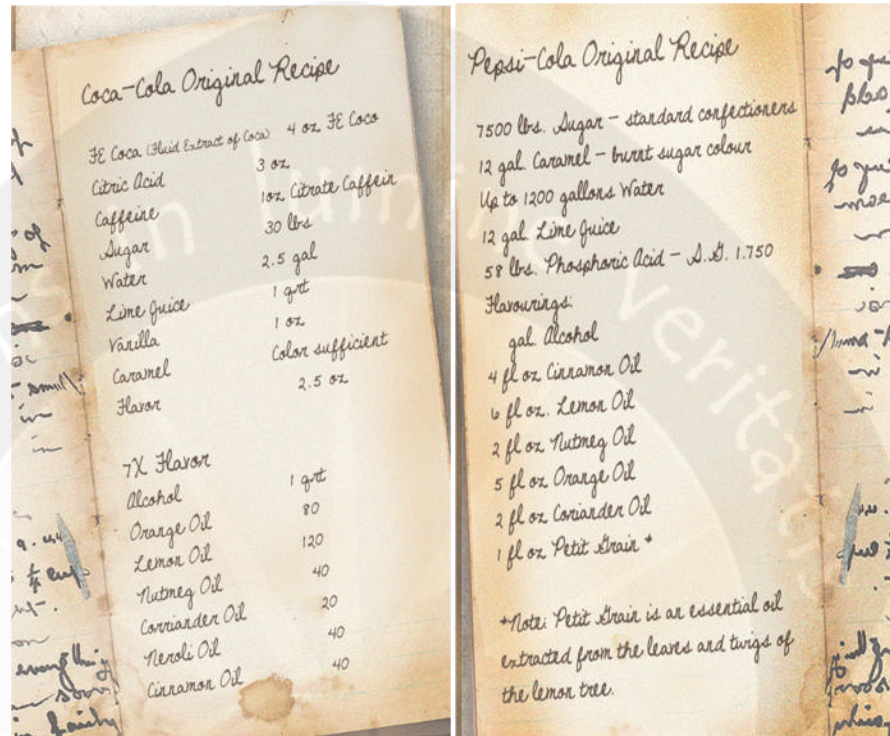 Coca-Cola Original Recipe
FE Coca (Fluid Extract of Coca) 4 oz FE Coco
Citric Acid 3 oz
Caffeine 1oz Citrate Caffein
Sugar 30 lbs
Water 2.5 gal
Lime Juice 1 qrt
Vanilla 1 oz
Caramel Color sufficient
Flavor 2.5 oz
7X Flavor
Alcohol 1 qrt
Orange Oil 80
Lemon Oil 120
Nutmeg Oil 40
Corriander Oil 20
Neroli Oil 40
Cinnamon Oil 40
Pepsi-Cola Original Recipe
7500 lbs. Sugar – standard confectioners
12 gal. Caramel – burnt sugar colour
Up to 1200 gallons Water
12 gal. Lime Juice
58 lbs. Phosphoric Acid – S.G. 1.750
Flavourings:
gal. Alcohol
4 fl oz Cinnamon Oil
6 fl oz. Lemon Oil
2 fl oz Nutmeg Oil
5 fl oz Orange Oil
2 fl oz Coriander Oil
1 fl oz Petit Grain *
*Note: Petit Grain is an essential oil
extracted from the leaves and twigs of
the lemon tree.
in lumine veritatis